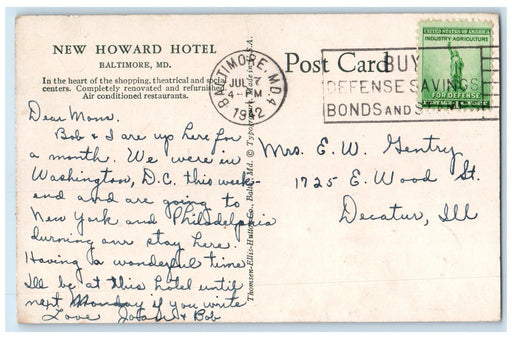 NEW HOWARD HOTEL
BALTIMORE, MD.
In the heart of the shopping, theatrical and social
centers. Completely renovated and refurnished
Air conditioned restaurants.
Dear Mom.
Bob & I are up here for
a month. We were in
Washington, D.C. this week-
end and are going to
New York and Philadelphia
durning our stay here.
Having a wonderful time
Ill be at this hotel until
next Monday if you write
Love & Bob
Thomsen-Ellis-Hutton Co., Balto. Md. © Typo U.S.A.
BALTIMORE, MD. 4
JUL 7
4 - PM
1942
Post Card
BUY
DEFENSE SAVINGS
BONDS AND
UNITED STATES OF AMERICA
INDUSTRY AGRICULTURE
FOR DEFENSE
Mrs. E. W. Gentry
1725 E. Wood St.
Decatur, Ill